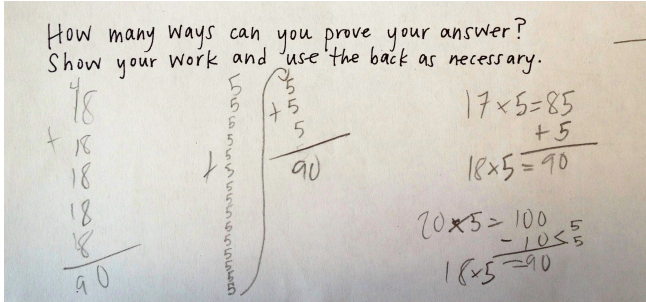 How many ways can you prove your answer?
Show your work and use the back as necessary.
4
18
+ 18
18
18
18
90
5
5
5
5
5
+ 5
5
5
5
5
5
5
5
5
5
5
+ 5
5
90
17 x 5 = 85
+ 5
18 x 5 = 90
20 x 5 = 100
- 10 < 5 5
18 x 5 = 90